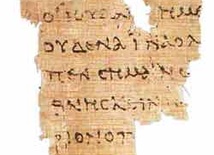 ΟΙΙΟΥΔΑΙ ΗΜΕ
ΟΥΔΕΝΑΙΝΑΟΛ
ΠΕΝCΗΜΑΙΝ
ΘΝΗCΚΕΙΝ
ΡΙΟΝΟΠ